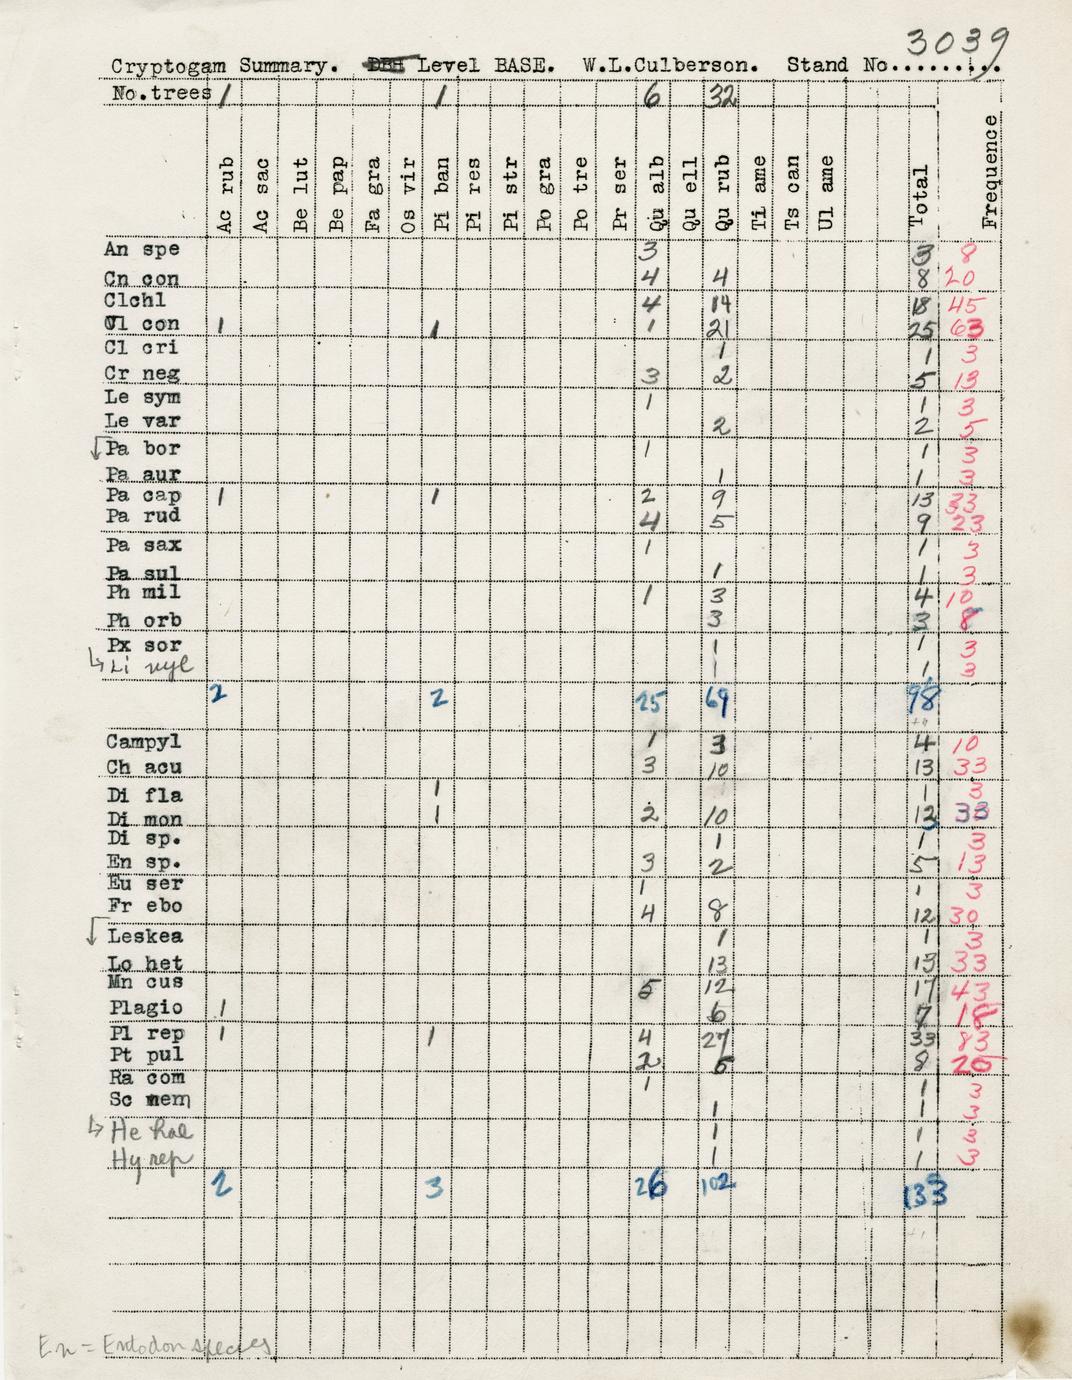 3039
Cryptogam Summary. DBH Level BASE. W.L.Culberson. Stand No..........
No.trees 1 1 6 32
Ac rub Ac sac Be lut Be pap Fa gra Os vir Pi ban Pi res Pi str Po gra Po tre Pr ser Qu alb Qu ell Qu rub Ti ame Ts can Ul ame Total Frequence
An spe 3 3 8
Cn con 4 4 8 20
Clchl 4 14 18 45
Cl con 1 1 1 21 25 63
Cl cri 1 1 3
Cr neg 3 2 5 13
Le sym 1 1 3
Le var 2 2 5
Pa bor 1 1 3
Pa aur 1 1 3
Pa cap 1 1 2 9 13 33
Pa rud 4 5 9 23
Pa sax 1 1 3
Pa sul 1 1 3
Ph mil 1 3 4 10
Ph orb 3 3 8
Px sor 1 1 3
Li nyl 1 1 3
2 2 25 69 98
Campyl 1 3 4 10
Ch acu 3 10 13 33
Di fla 1 1 3
Di mon 1 2 10 13 33
Di sp. 1 1 3
En sp. 3 2 5 13
Eu ser 1 1 3
Fr ebo 4 8 12 30
Leskea 1 1 3
Lo het 13 13 33
Mn cus 5 12 17 43
Plagio 1 6 7 18
Pl rep 1 1 4 27 33 83
Pt pul 2 6 8 20
Ra com 1 1 3
Sc mem 1 1 3
He hal 1 1 3
Hy rep 1 1 3
2 3 26 102 133
En = Entodon species